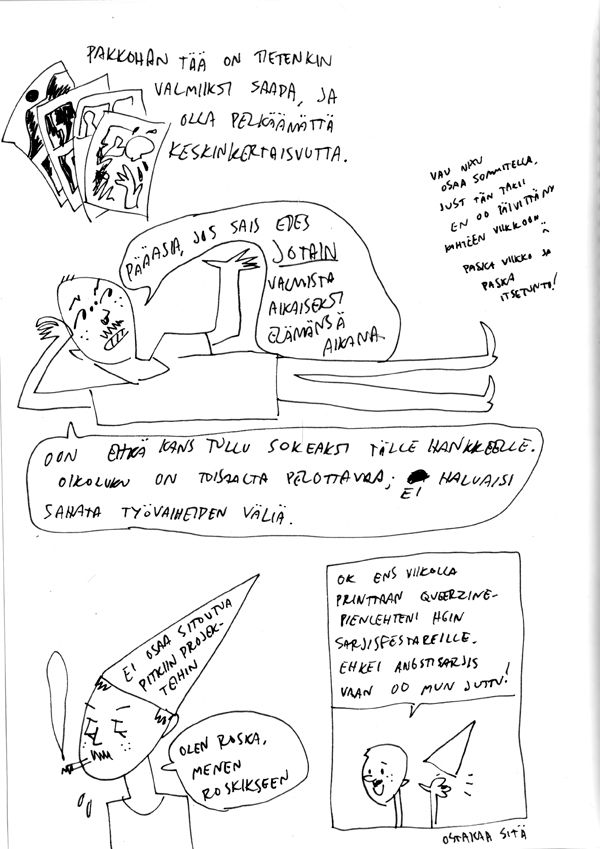 PAKKOHAN TÄÄ ON TIETENKIN
VALMIIKSI SAADA, JA
OLLA PELKÄÄMÄTTÄ
KESKINKERTAISUUTTA.
VAU NÄIN
OSAA SOMMITELLA,
JUST TÄN TAKII
EN OO PÄIVITTÄNY
KAHTEEN VIIKKOON
PASKA VIIKKO JA
PASKA
ITSETUNTO!
PÄÄASIA, JOS SAIS EDES
JOTAIN
VALMISTA
AIKAISEKSI
ELÄMÄNSÄ
AIKANA
OON EHKÄ KANS TULLU SOKEAKSI TÄLLE HANKKEELLE.
OIKOLUKU ON TOISAALTA PELOTTAVAA; EI HALUAISI
SAHATA TYÖVAIHEIDEN VÄLIÄ.
EI OSAA SITOUTUA
PITKIIN PROJEK-
TEIHIN
OLEN ROSKA,
MENEN
ROSKIKSEEN
OK ENS VIIKOLLA
PRINTTAAN QUEERZINE-
PIENLEHTENI HGIN
SARJISFESTAREILLE.
EHKEI ANGSTISARJIS
VAAN OO MUN JUTTU!
OSTAKAA SITÄ